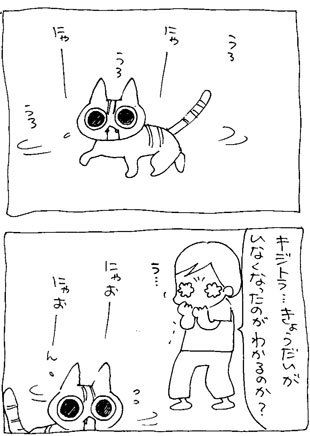 うろ
にゃ
うろ
にゃ
うろ
キジトラ…きょうだいが
いなくなったのがわかるのか?
う…
にゃお
にゃお
ん